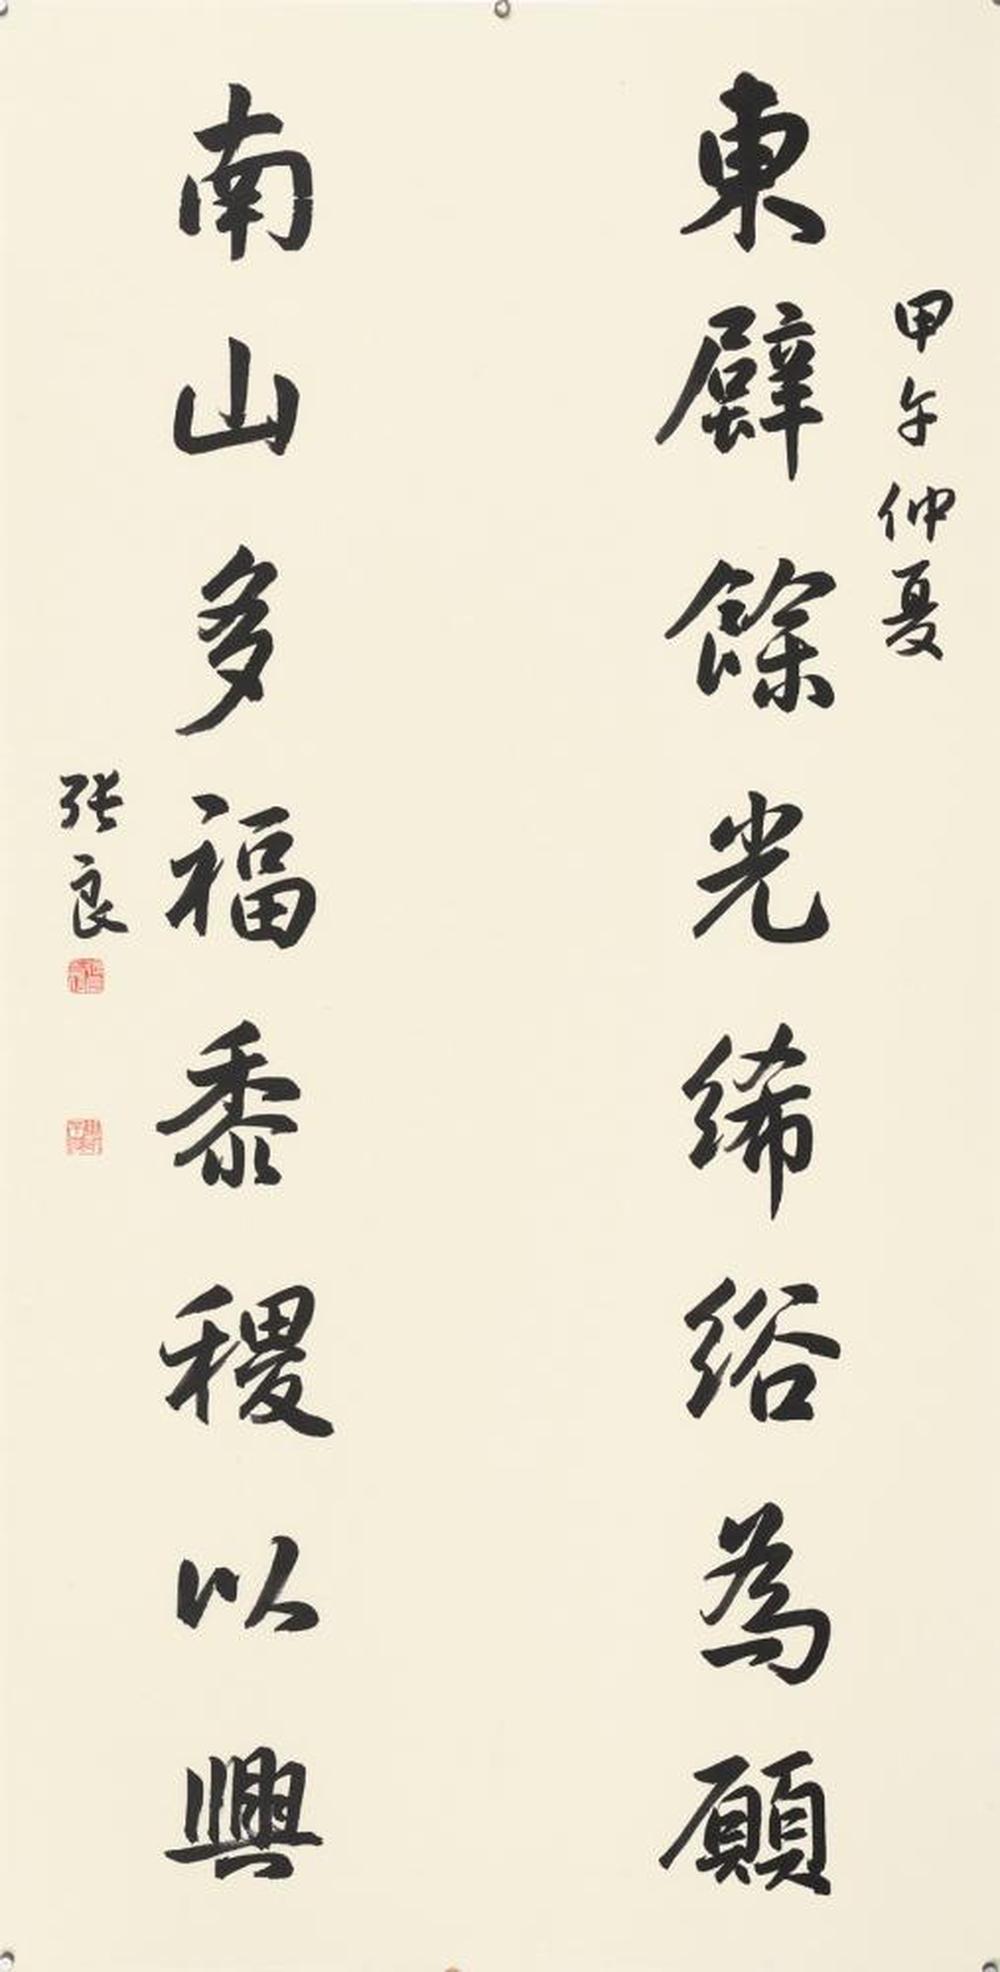 甲午仲夏
東壁餘光絺綌為願
南山多福黍稷以興
张良